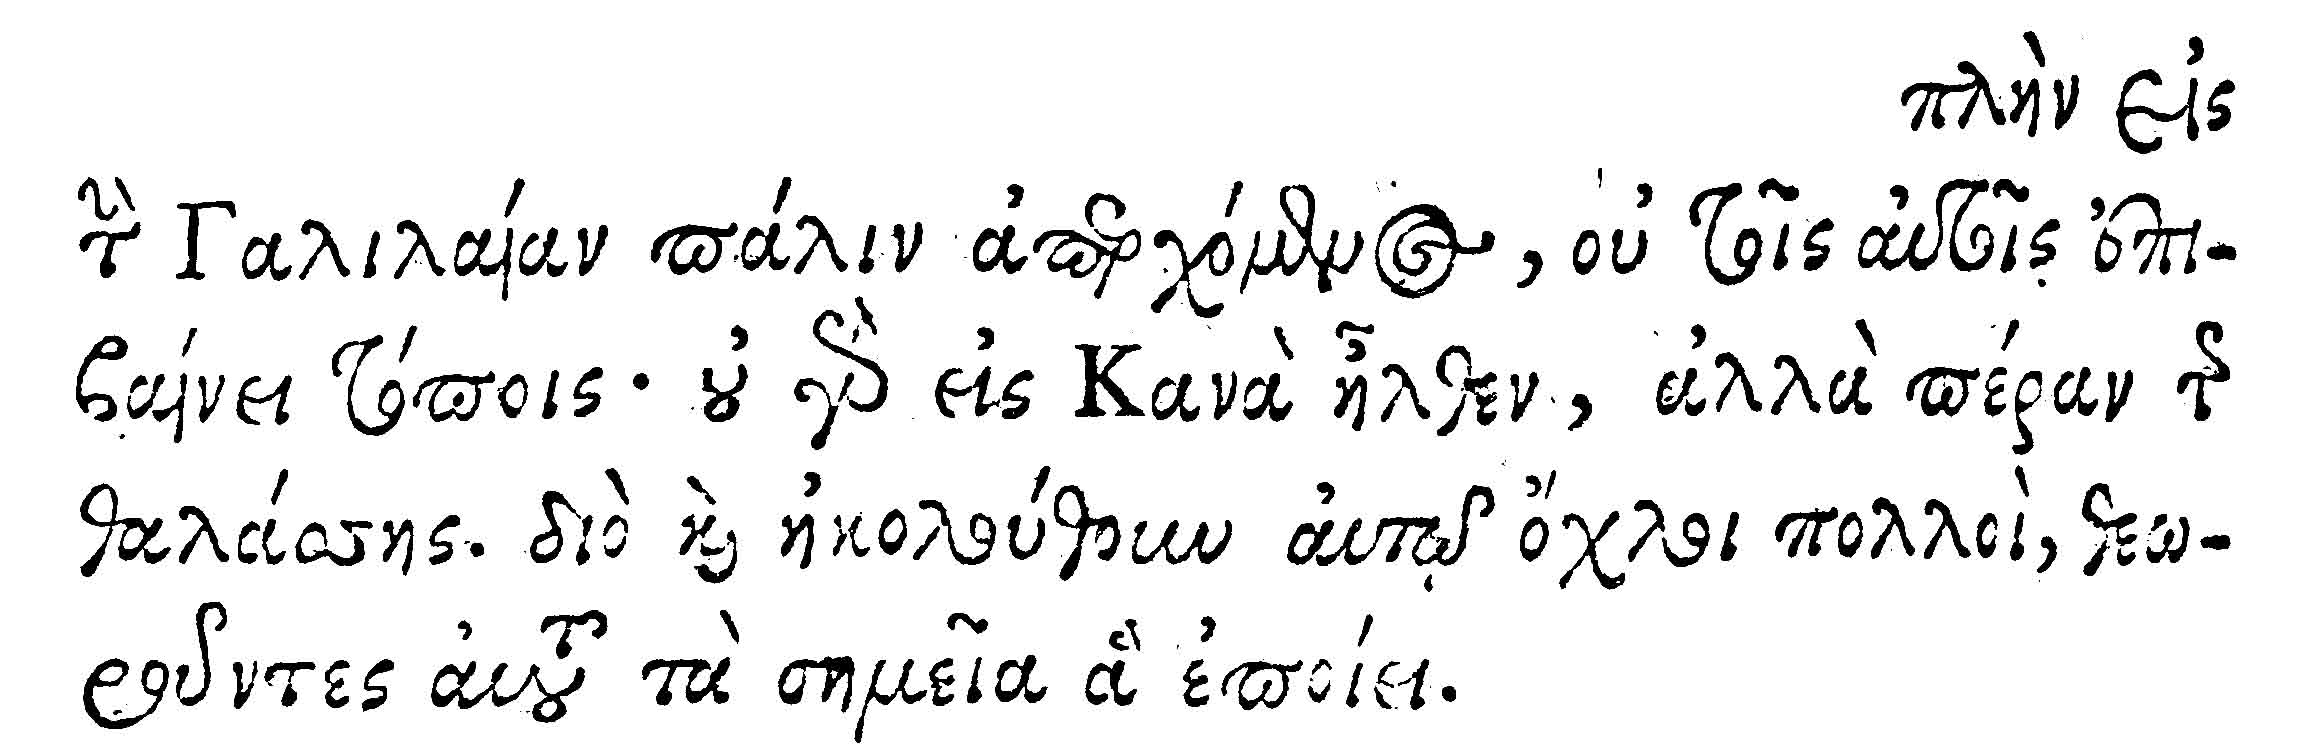 πλὴν εἰς
τὴν Γαλιλαίαν πάλιν ἀπερχόμενος, οὐ τοῖς αὐτοῖς ἐπι-
βαίνει τόποις· οὐ γὰρ εἰς Κανὰ ἦλθεν, ἀλλὰ πέραν τῆς
θαλάσσης. διὸ καὶ ἠκολούθουν αὐτῷ ὄχλοι πολλοὶ, θεω-
ροῦντες αὐτοῦ τὰ σημεῖα ἃ ἐποίει.